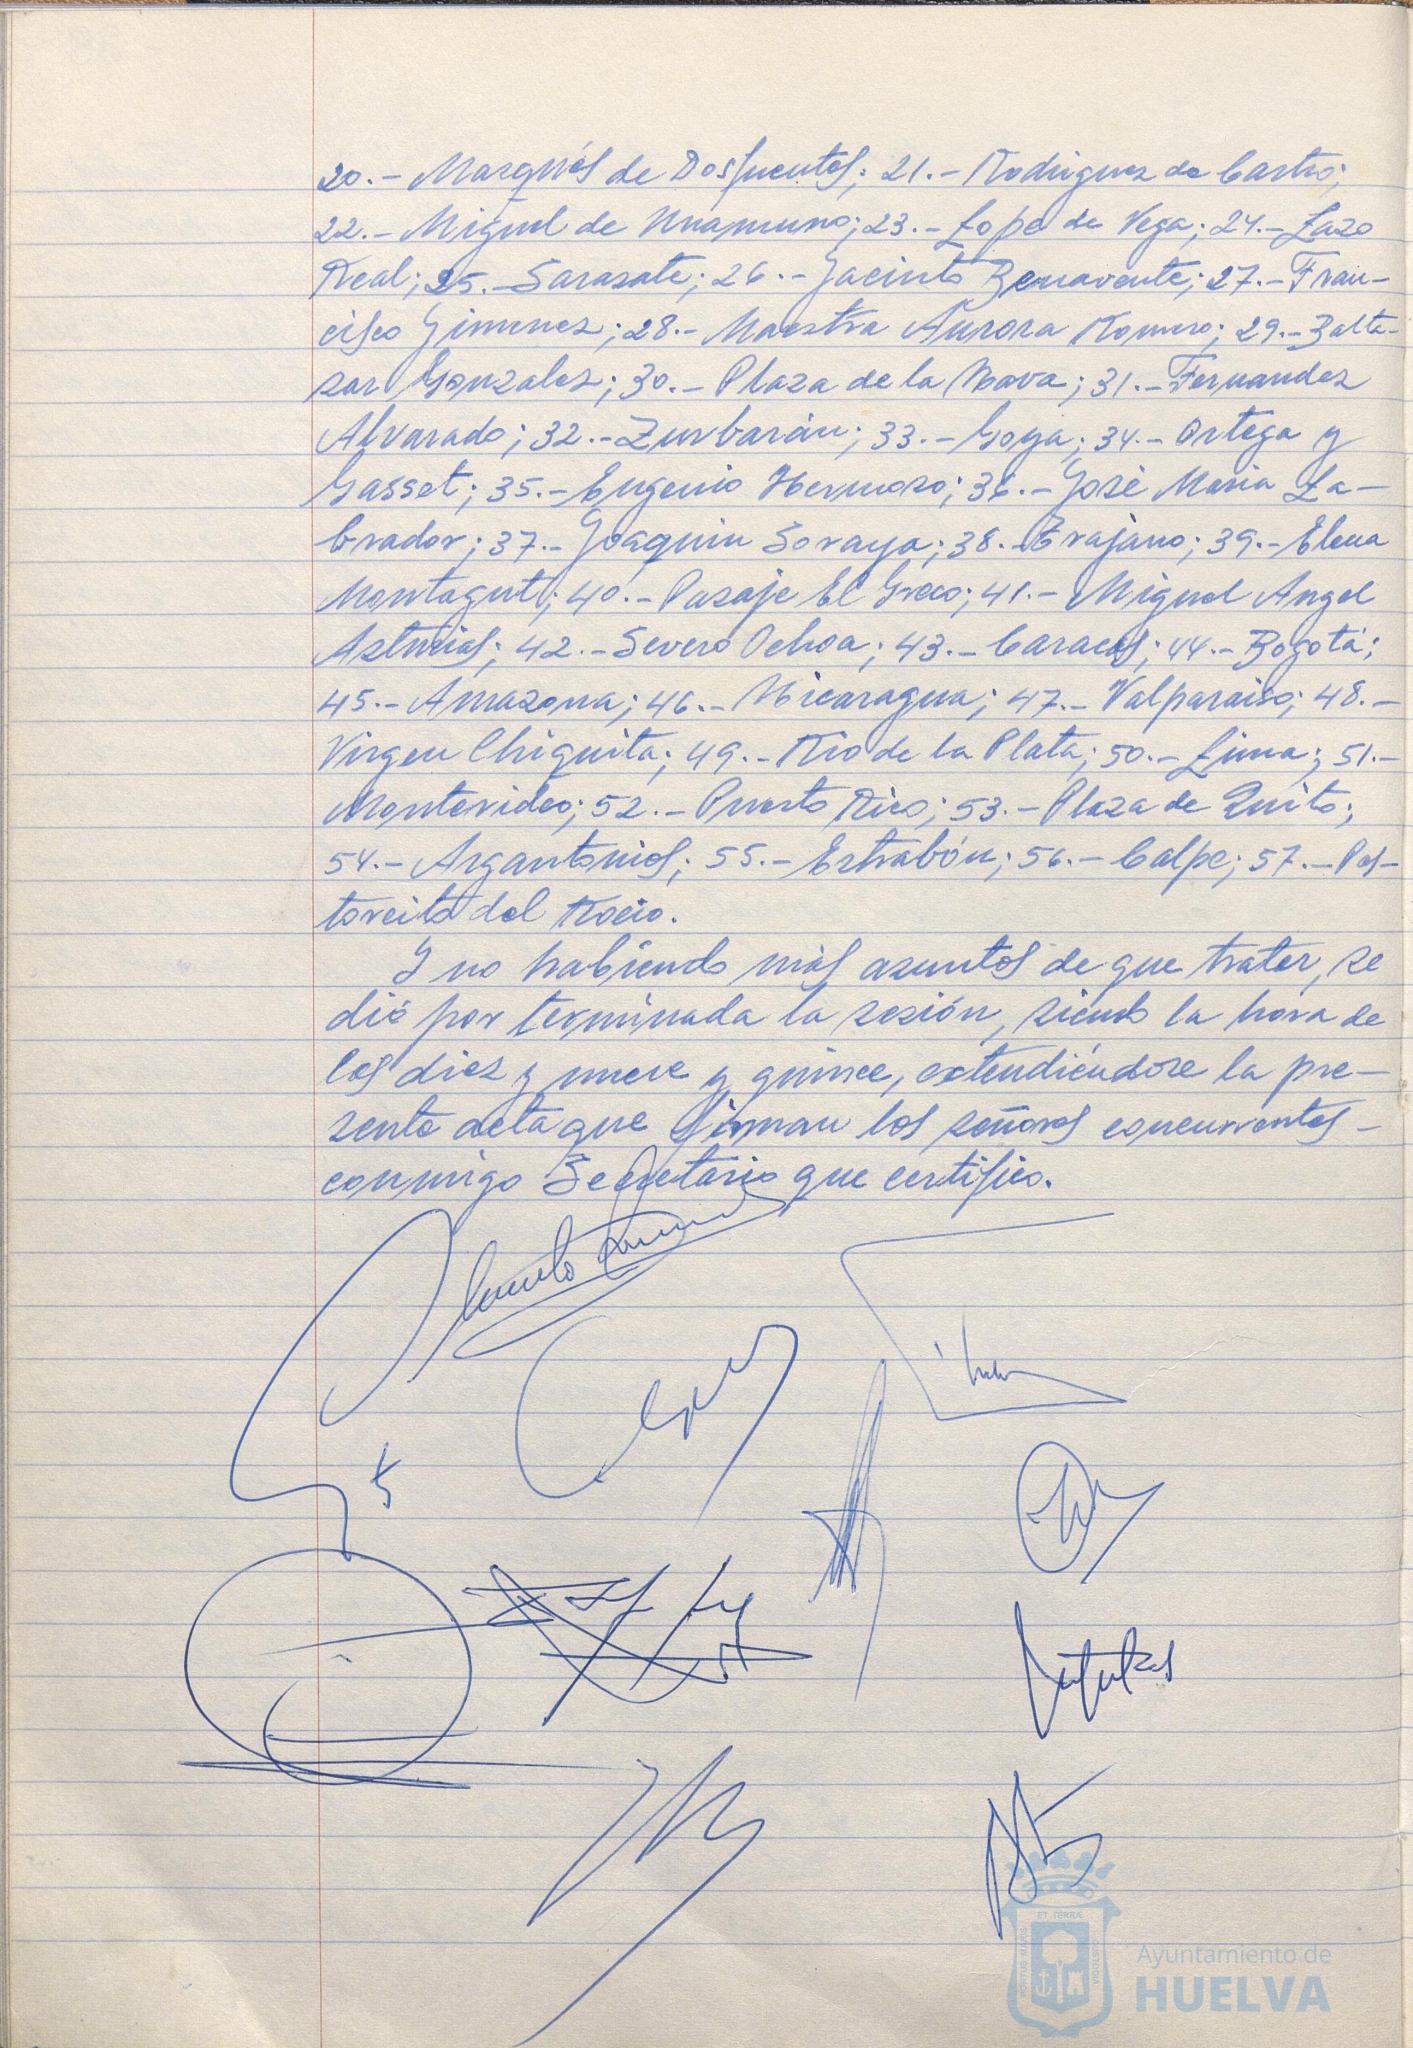 20.- Marqués de Dosfuentes; 21.- Rodriguez de Castro;
22.- Miguel de Unamuno; 23.- Lope de Vega; 24.- Lazo
Real; 25.- Sarasate; 26.- Jacinto Benavente; 27.- Fran-
cisco Gimenez; 28.- Maestra Aurora Romero; 29.- Balta-
zar Gonzalez; 30.- Plaza de la Nava; 31.- Fernandez
Alvarado; 32.- Zurbarán; 33.- Goya; 34.- Ortega y
Gasset; 35.- Eugenio Hermoso; 36.- José Maria La-
brador; 37.- Joaquin Soraya; 38.- Trajano; 39.- Elena
Montagut; 40.- Pasaje El Greco; 41.- Miguel Angel
Asturias; 42.- Severo Ochoa; 43.- Caracas; 44.- Bogotá;
45.- Amazona; 46.- Nicaragua; 47.- Valparaiso; 48.-
Virgen Chiquita; 49.- Rio de la Plata; 50.- Lima; 51.-
Montevideo; 52.- Puerto Rico; 53.- Plaza de Quito;
54.- Argantonios; 55.- Estrabón; 56.- Calpe; 57.- Pas-
torcito del Rocio.
Y no habiendo más asuntos de que tratar, se
dió por terminada la sesión, siendo la hora de
las diez y nueve y quince, extendiéndose la pre-
sente acta que firman los señores concurrentes -
conmigo Secretario que certifico.
ET TERRÆ
Ayuntamiento de
HUELVA